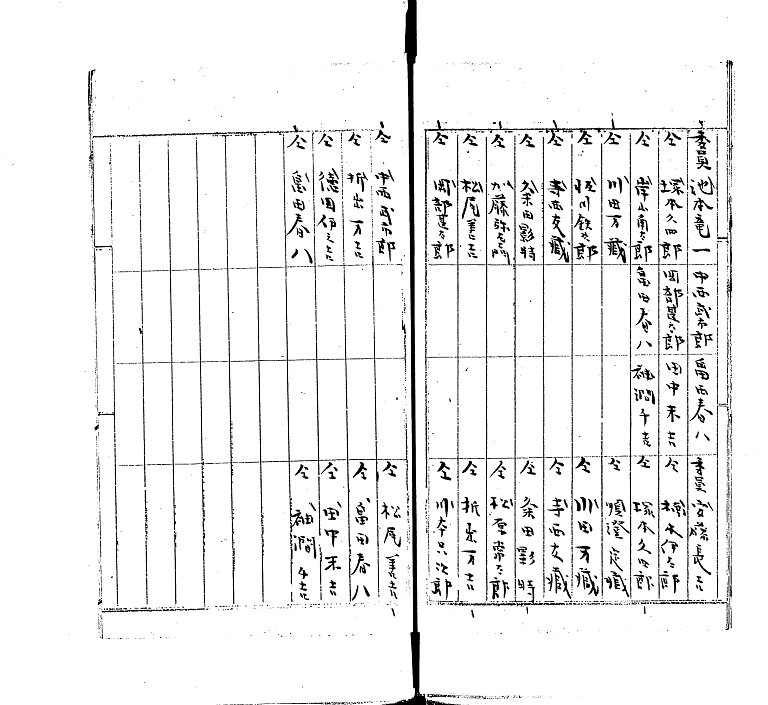 委員 池本竜一 中西武市郎 畠田春八 委員 安藤長吉
仝 塚本久四郎 岡部甚太郎 田中末吉 仝 楠本伊太郎
仝 岸山角太郎 畠田春八 袖澗千吉 仝 塚本久四郎
仝 川田万藏 仝 須澄定藏
仝 川鉄太郎 仝 川田万藏
仝 寺西友藏 仝 寺西友藏
仝 粂田影時 仝 粂田影時
仝 加藤弥右衛門 仝 松原常太郎
仝 松尾善吉 仝 折出万吉
仝 岡部甚太郎 仝 川本只次郎
仝 中西武市郎 仝 松尾善吉
仝 折出万吉 仝 畠田春八
仝 徳田伊之吉 仝 田中末吉
仝 畠田春八 仝 袖澗千吉